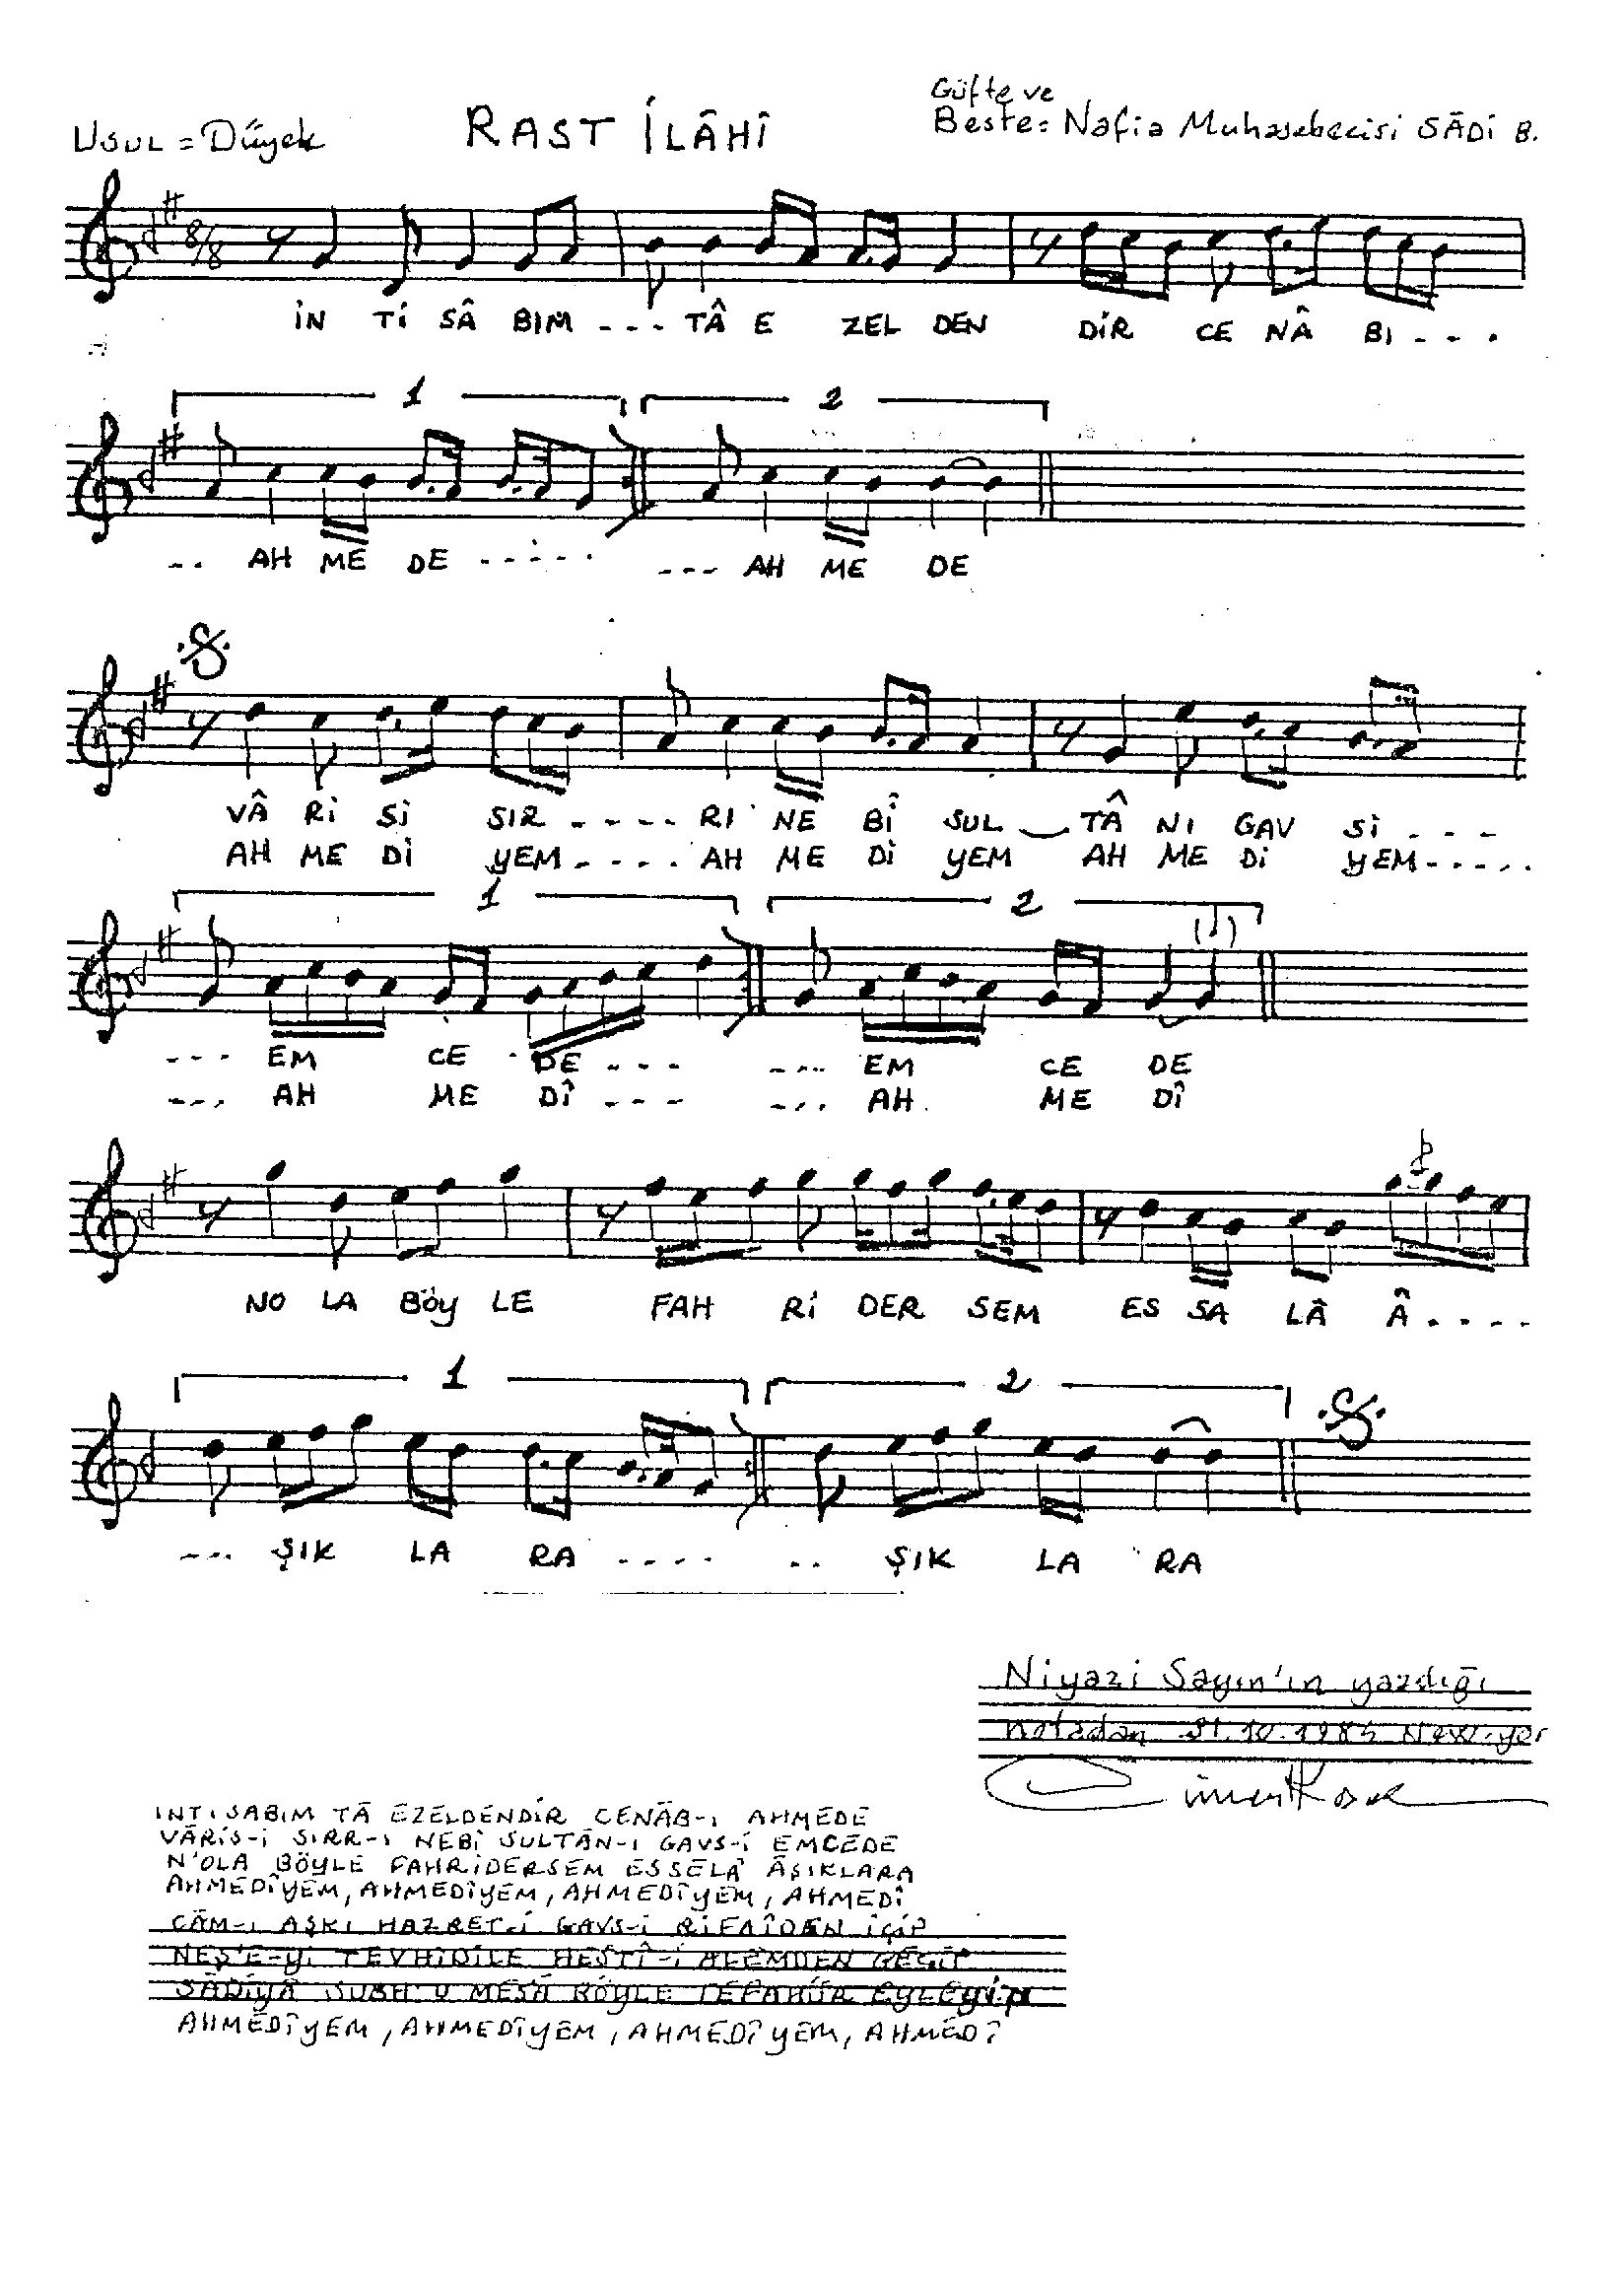 Güfte ve
Usul = Düyek RAST İLÂHÎ Beste: Nafia Muhasebecisi SÂDİ B.
8/8
İN Tİ SÂ BIM - - - TÂ E ZEL DEN DİR CE NÂ BI - - - .
1 2
- - . AH ME DE - - - - - . - - - AH ME DE
VÂ Rİ Sİ SIR - - - - - RI NE BÎ SUL TÂ NI GAV Sİ - - - -
AH ME Dİ YEM - - - - . AH ME Dİ YEM AH ME Dİ YEM - - - - - .
1 2
- - - . EM CE DE - - - - - - - EM CE DE
- - - . AH ME DÎ - - - - - - . AH ME DÎ
NO LA BÖY LE FAH Rİ DER SEM ES SA LÂ Â - - - - -
1 2
- - - . ŞIK LA RA - - - - . - - ŞIK LA RA
Niyazi Sayın'ın yazdığı
notadan
INTİSABIM TÂ EZELDENDİR CENÂB-I AHMEDE
VÂRİS-İ SIRR-I NEBÎ SULTÂN-I GAVS-İ EMCEDE
N'OLA BÖYLE FAHRİDERSEM ESSELÂ ÂŞIKLARA
AHMEDÎYEM, AHMEDÎYEM, AHMEDÎYEM, AHMEDÎ
CÂM-I AŞKI HAZRET-İ GAVS-İ RİFAÎDEN İÇİP
NEŞ'E-Yİ TEVHİDİLE HESTÎ-İ ALEMDEN GEÇİP
SÂDİYÂ SUBH U MESÂ BÖYLE TEFAHÜR EYLEYİP
AHMEDÎYEM, AHMEDÎYEM, AHMEDÎYEM, AHMEDÎ